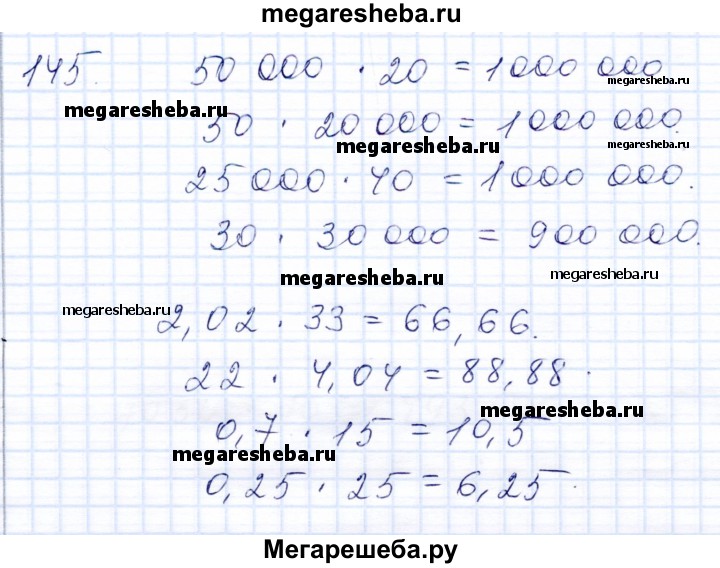 megaresheba.ru
145. 50 000 · 20 = 1 000 000
megaresheba.ru
megaresheba.ru
50 · 20 000 = 1 000 000.
megaresheba.ru
megaresheba.ru
25 000 · 40 = 1 000 000.
30 · 30 000 = 900 000.
megaresheba.ru
megaresheba.ru
megaresheba.ru
2,02 · 33 = 66,66.
22 · 4,04 = 88,88.
megaresheba.ru
0,7 · 15 = 10,5
megaresheba.ru
0,25 · 25 = 6,25.
Мегарешеба.ру